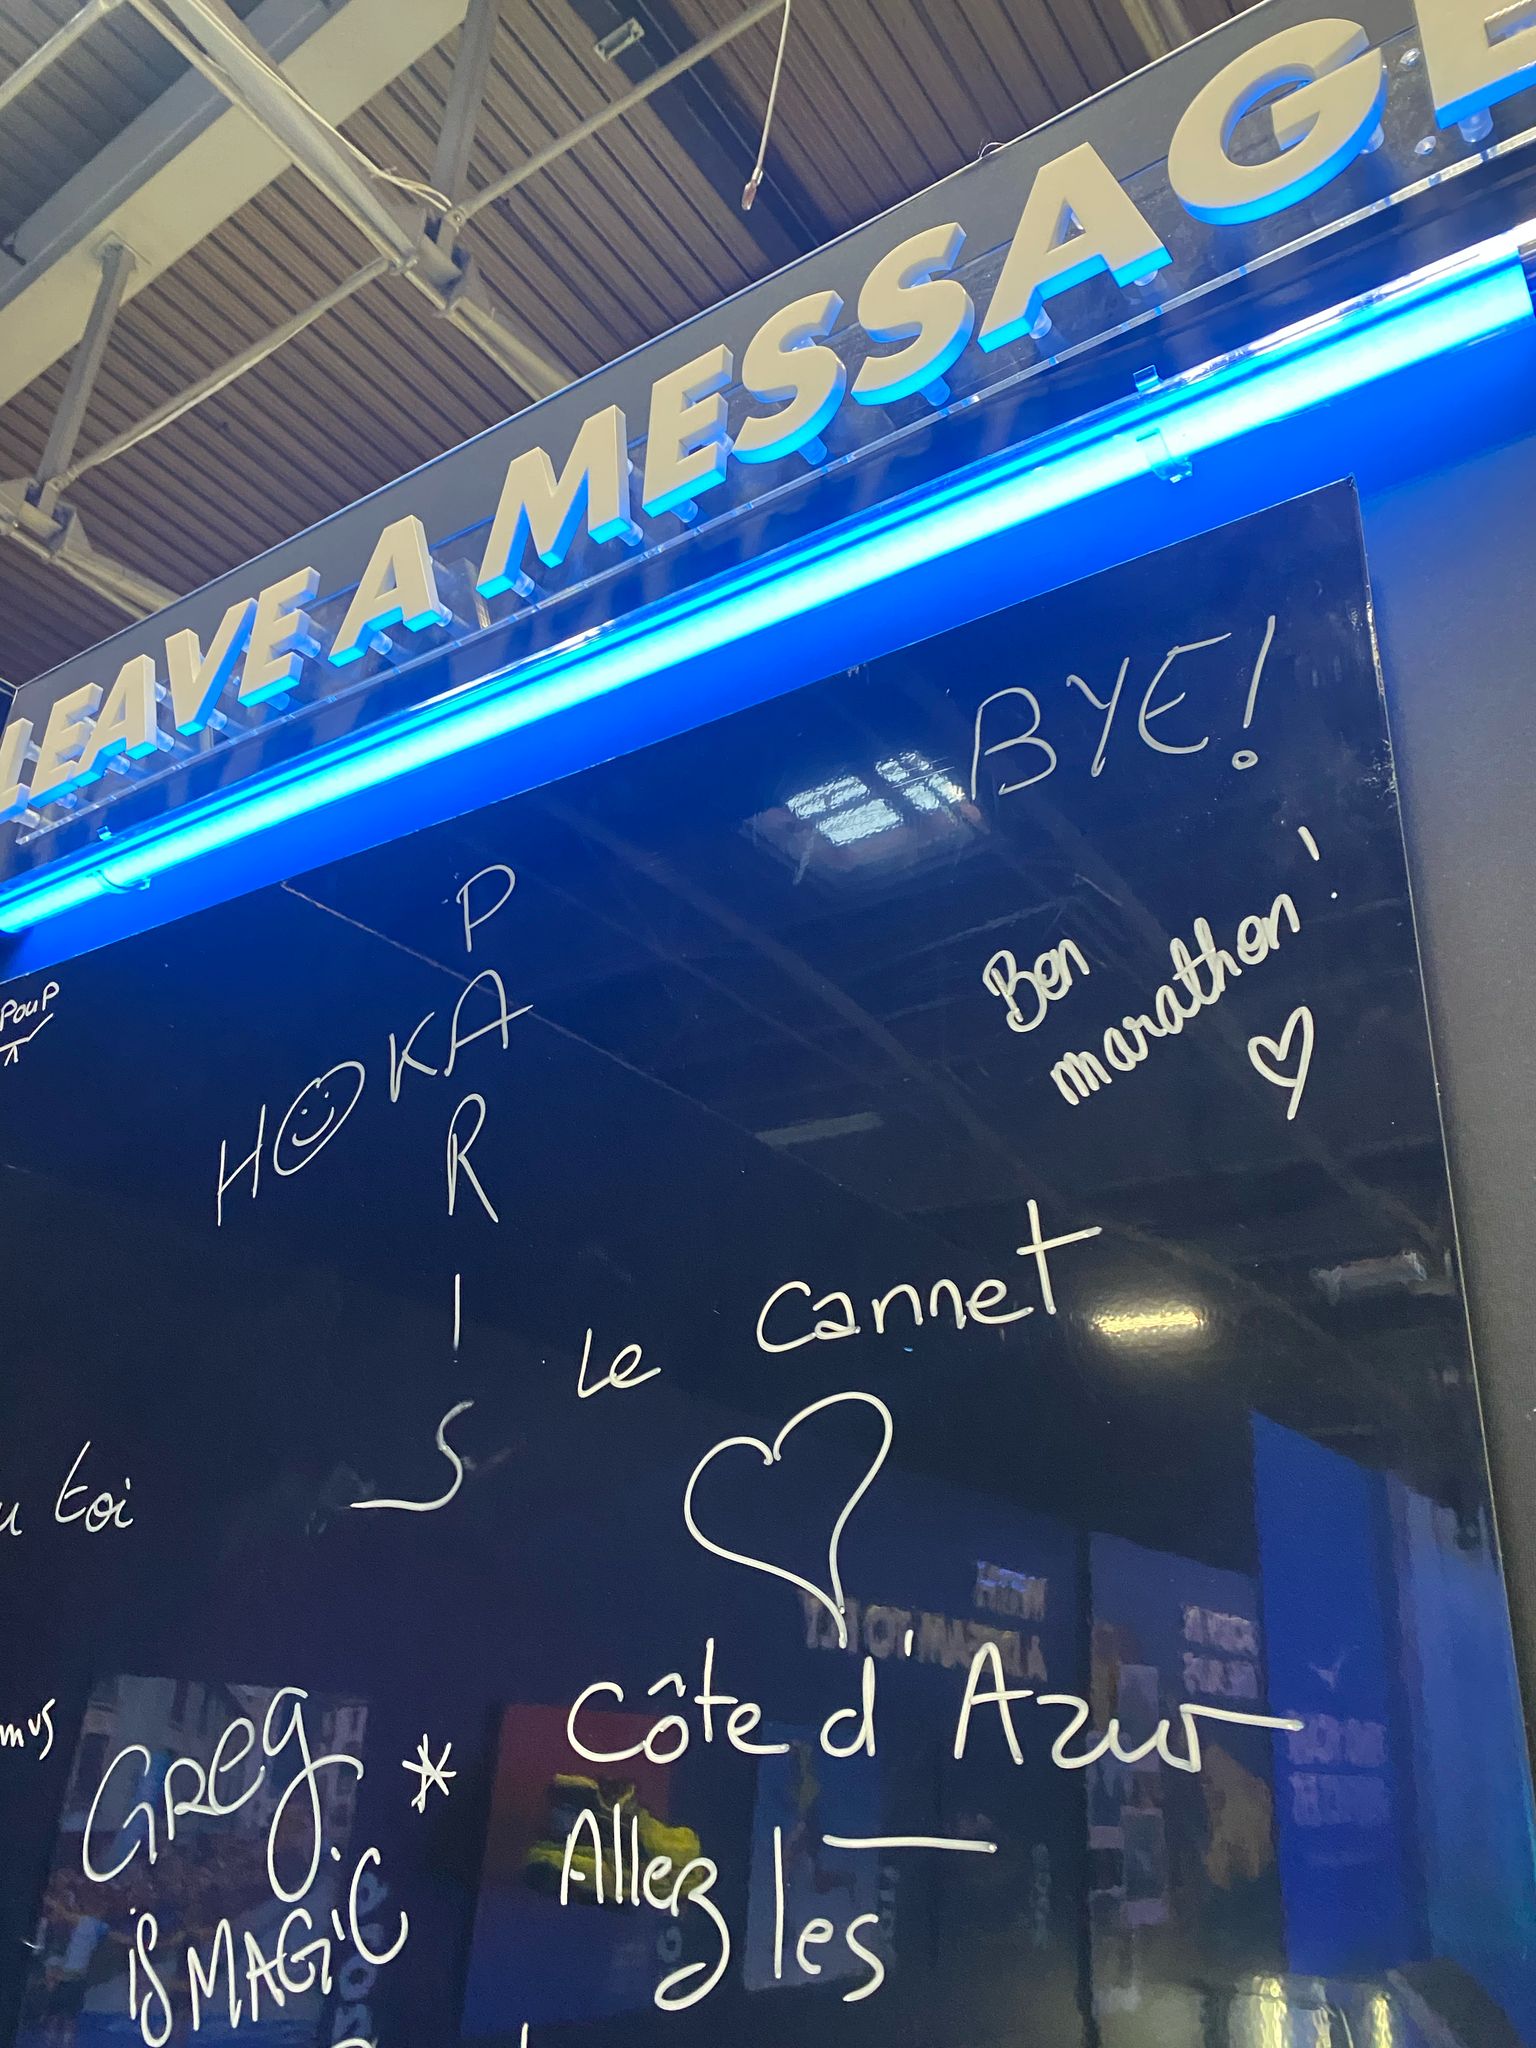 LEAVE A MESSAGE
BYE!
Ben
marathon!
Poup
P
HOKA
R
I
S
Le Cannet
toi
Côte d'Azur
Greg *
is MAGiC
Allez les